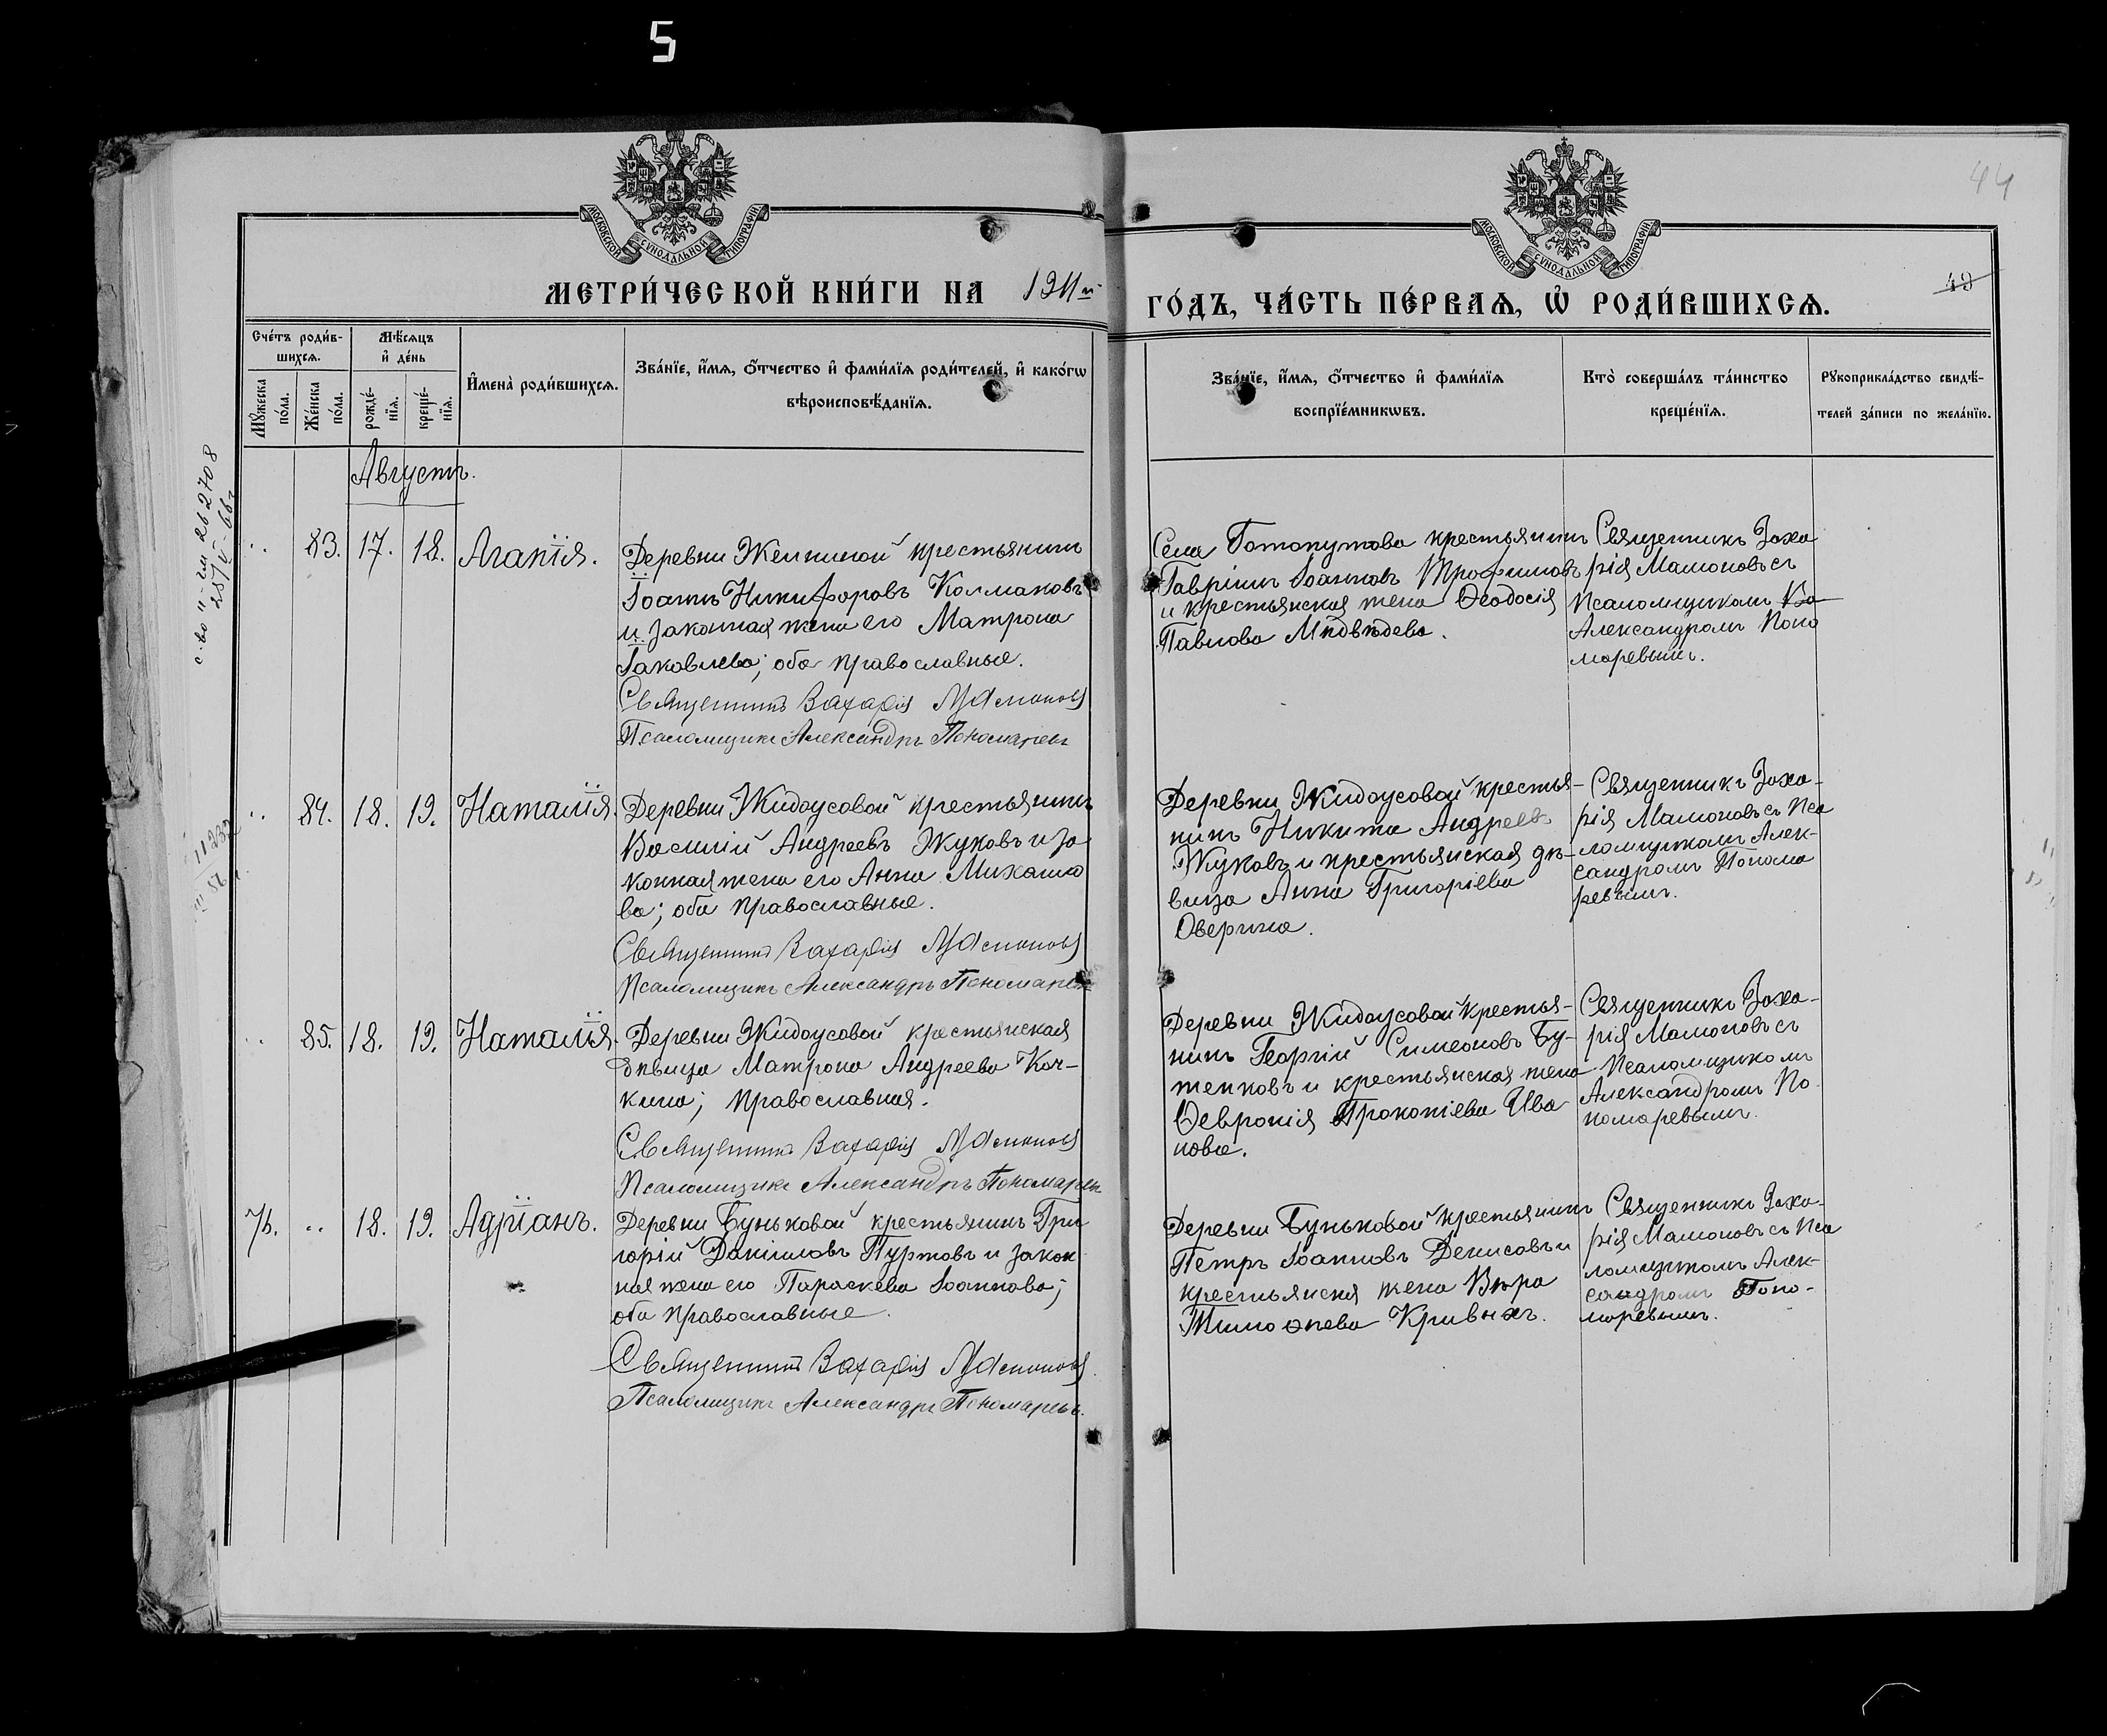 5
МОСКОВСКОЙ СУНОДАЛЬНОЙ ТИПОГРАФІИ.
МОСКОВСКОЙ СУНОДАЛЬНОЙ ТИПОГРАФІИ.
44
49
МЕТРИ́ЧЕСКОЙ КНИ́ГИ НА 1911й
ГО́ДЪ, ЧА́СТЬ ПЕ́РВАѦ, Ѡ҆ РОДИ́ВШИХСѦ.
Сче́тъ роди́в-
шихсѧ.
Мѣ́сѧцъ
и҆ де́нь
Мꙋ́жеска
по́ла.
Же́нска
по́ла.
рожде́-
нїѧ.
креще́-
нїѧ.
И҆мена̀ роди́вшихсѧ.
Зва́нїе, и҆́мѧ, ѻ҆́тчество и҆ фами́лїѧ роди́телей, и҆ како́гѡ
вѣроисповѣ́данїѧ.
Зва́нїе, и҆́мѧ, ѻ҆́тчество и҆ фами́лїѧ
воспрїе́мникѡвъ.
Кто̀ соверша́лъ та́инство
креще́нїѧ.
Рꙋкоприкла́дство свидѣ́-
телей за́писи по жела́нїю.
Августъ.
83. 17. 18. Агапія.
Деревни крестьянинъ
Іоаннъ Никифоровъ Колмаковъ
и законная жена его Матрона
Іаковлева; оба православные.
Священникъ Захарія Мамоновъ
Псаломщикъ Александръ Пономаревъ
Села Готопутова крестьянинъ
Гавріилъ Іоанновъ Трофимовъ
и крестьянская жена Ѳеодосія
Павлова Мѣдвѣдева.
Священникъ Заха
рія Мамоновъ съ
Псаломщикомъ
Александромъ Поно
маревымъ.
84. 18. 19. Наталія.
Деревни Жидоусовой крестьянинъ
Василій Андреевъ Жуковъ и за
конная жена его Анна Михаило
ва; оба православные.
Священникъ Захарія Мамоновъ
Псаломщикъ Александръ Пономаревъ
Деревни Жидоусовой крестья-
нинъ Никита Андреевъ
Жуковъ и крестьянская дѣ-
вица Анна Григоріева
Оверина.
Священникъ Заха-
рія Мамоновъ съ Пса
ломщикомъ Алек-
сандромъ Понома
ревымъ.
85. 18. 19. Наталія.
Деревни Жидоусовой крестьянская
дѣвица Матрона Андреева Коч-
кина; православная.
Священникъ Захарія Мамоновъ
Псаломщикъ Александръ Пономаревъ
Деревни Жидоусовой крестья-
нинъ Георгій Симеоновъ Бу-
тенковъ и крестьянская жена
Ѳевронія Прокопіева Ива
нова.
Священникъ Заха-
рія Мамоновъ съ
Псаломщикомъ
Александромъ По
номаревымъ.
18. 19. Адріанъ.
Деревни Буньковой крестьянинъ Гри
горій Даніиловъ Пуртовъ и закон
ная жена его Параскева Іоаннова;
оба православные.
Священникъ Захарія Мамоновъ.
Псаломщикъ Александръ Пономаревъ.
Деревни Буньковой крестьянинъ
Петръ Іоанновъ Денисовъ и
крестьянская жена Вѣра
Тимоѳеева Кривыхъ.
Священникъ Заха-
рія Мамоновъ съ Пса
ломщикомъ Алек-
сандромъ Поно-
маревымъ.